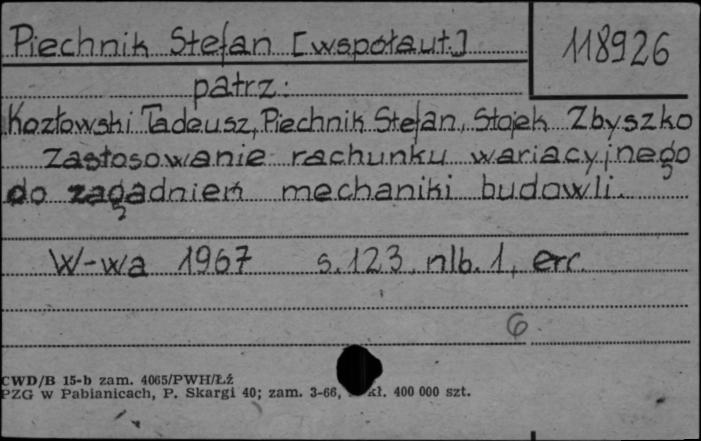 Piechnik Stefan [współaut.]
118926
patrz:
Kozłowski Tadeusz, Piechnik Stefan, Stojek Zbyszko
Zastosowanie rachunku wariacyjnego
do zagadnień mechaniki budowli.
W-wa 1967 s. 123, nlb. 1, err.
6
CWD/B 15-b zam. 4065/PWH/Łź
PZG w Pabianicach, P. Skargi 40; zam. 3-66, kł. 400 000 szt.